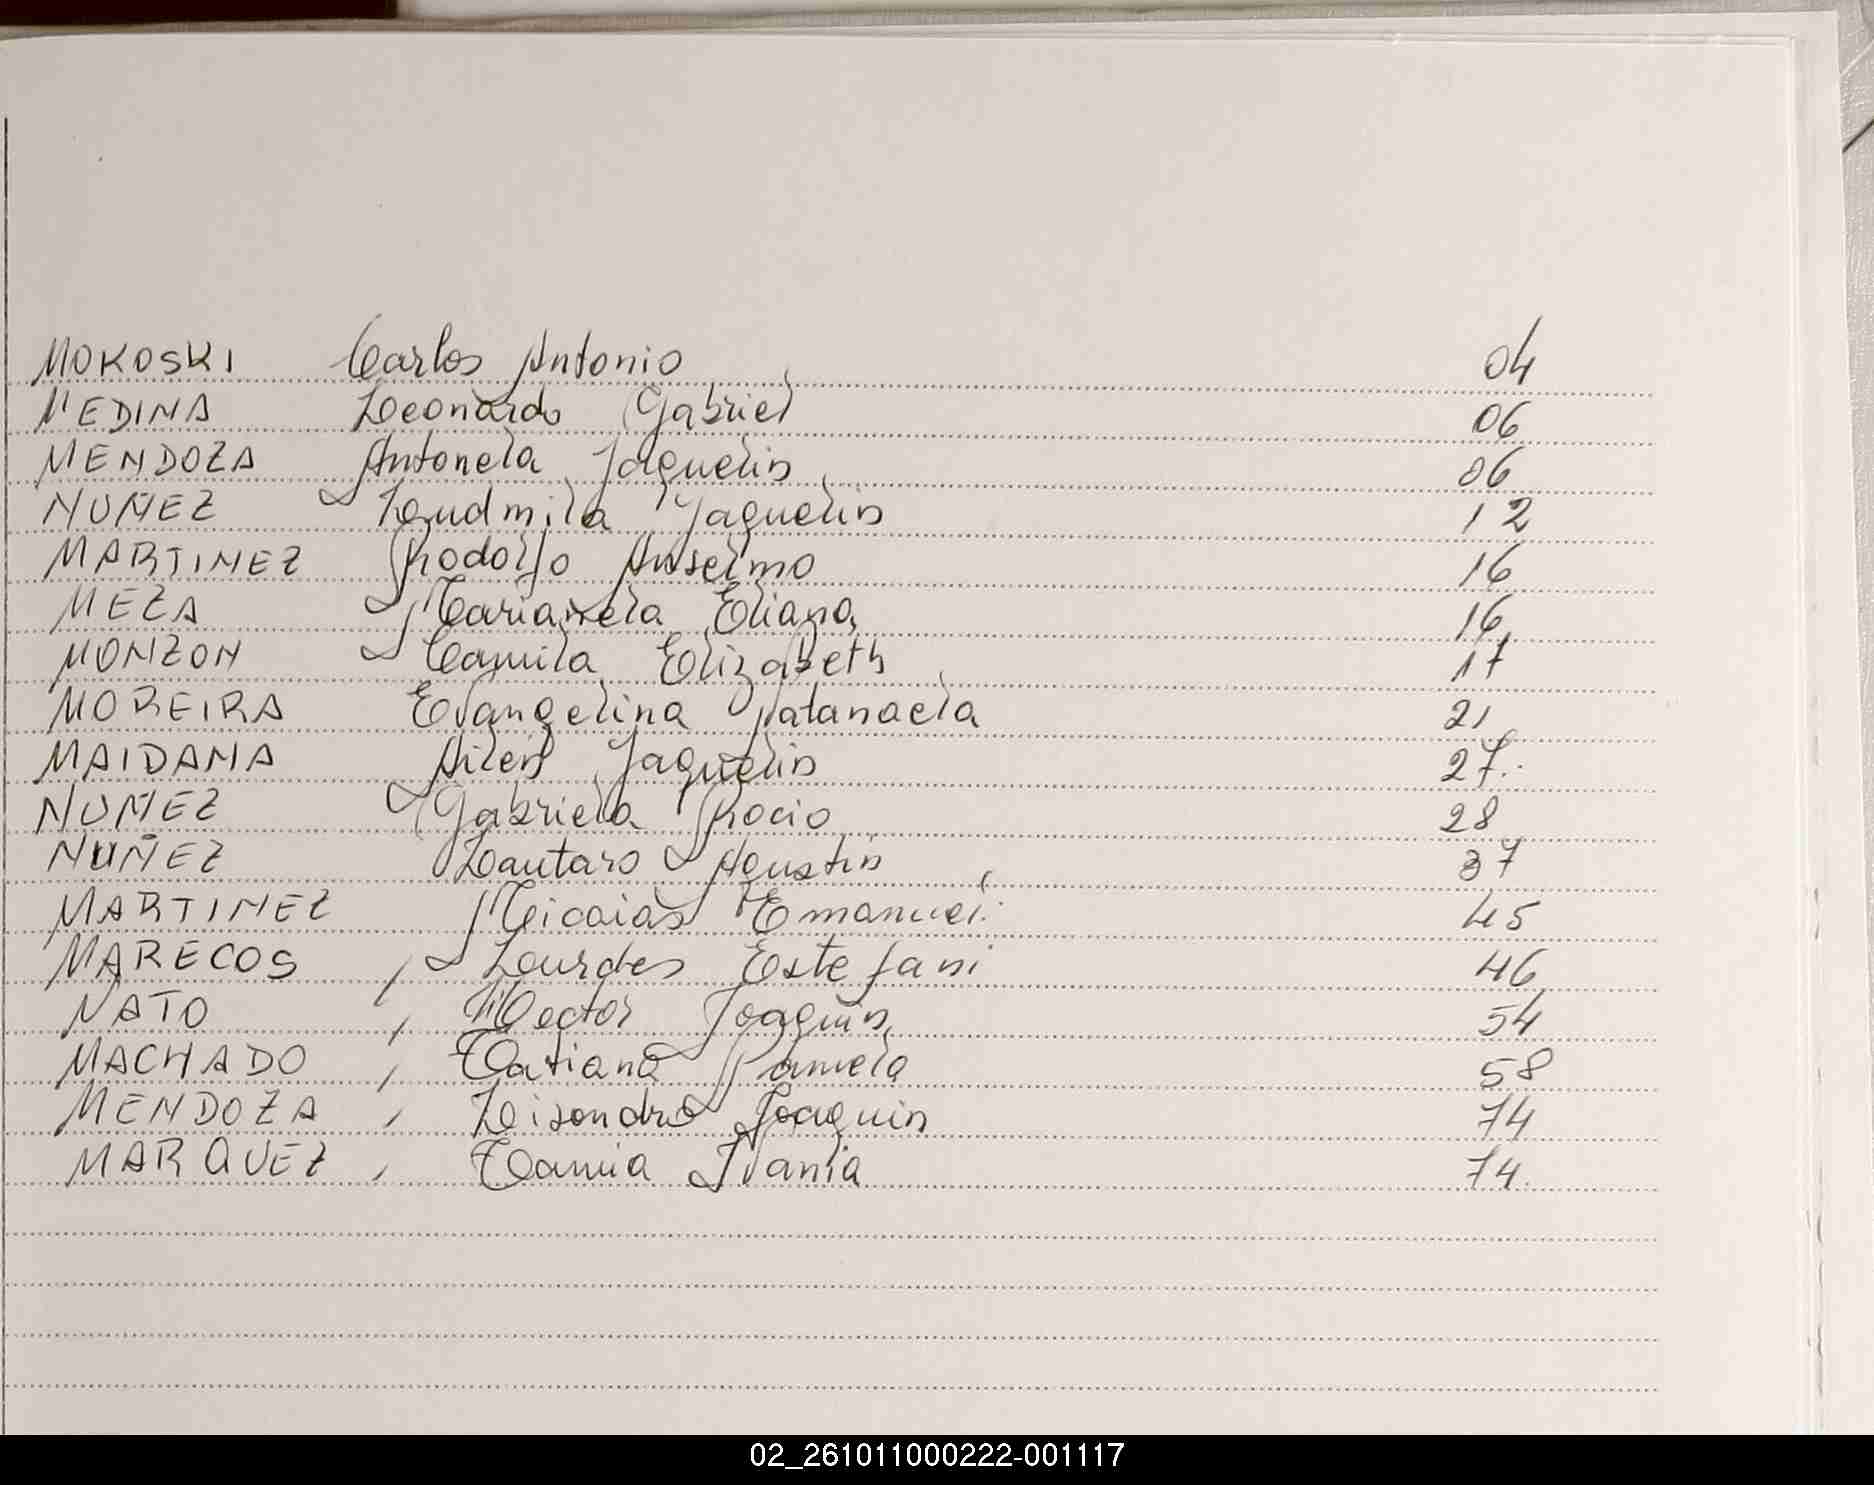 MOKOSKI Carlos Antonio 04
MEDINA Leonardo Gabriel 06
MENDOZA Antonela Jaquelin 06
NUÑEZ Ludmila Jaquelin 12
MARTINEZ Rodolfo Anselmo 16
MEZA Marianela Eliana 16
MONZON Camila Elizabeth 17
MOREIRA Evangelina Natanaela 21
MAIDANA Ailen Jaquelin 27
NUÑEZ Gabriela Rocio 28
NUÑEZ Lautaro Agustin 37
MARTINEZ Micaias Emanuel 45
MARECOS, Lourdes Estefani 46
NATO, Hector Joaquin 54
MACHADO, Tatiana Pamela 58
MENDOZA, Lisandro Joaquin 74
MARQUEZ, Tania Ivania 74
02_261011000222-001117